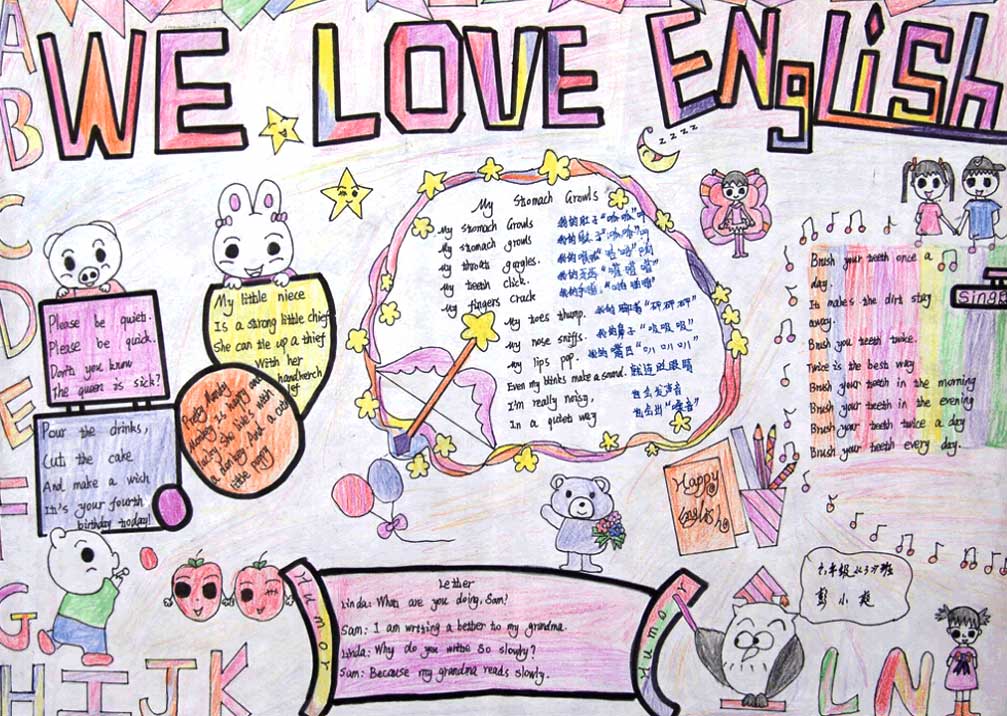 WE LOVE ENgLiSh
A
B
C
D
E
F
G
H I J K
L N
z z z z
Please be quiet.
Please be quick.
Don't you know
The queen is sick?
My little niece
Is a strong little chief
She can tie up a thief
With her
handkerch
ief
Pour the drinks,
Cut the cake
And make a wish
It's your fourth
birthday today!
Pretty
always is happy and
lucky she lives with
a donkey And a
little puppy
My Stomach Growls
My stomach Growls 我的肚子
My stomach growls 我的肚子
My throats gurgles. 我的喉咙
My teeth click. 我的牙齿
My fingers crack 我的手指
My toes thump. 我的脚趾“砰砰砰”
My nose sniffs. 我的鼻子“吸吸吸”
My lips pop. 我的嘴唇“叭叭叭”
Even my blinks make a sound. 就连眨眼睛
I'm really noisy, 也会发声音
In a quiet way
Brush your teeth once a
day.
It makes the dirt stay
away.
Brush you teeth twice.
Twice is the best way
Brush your teeth in the morning
Brush your teeth in the evening
Brush your teeth twice a day
Brush your teeth every day.
Happy
English
Humor
Letter
Linda: What are you doing, Sam?
Sam: I am writing a better to my grandma.
Linda: Why do you write so slowly?
Sam: Because my grandma reads slowly.
Humor
六年级 班
彭小